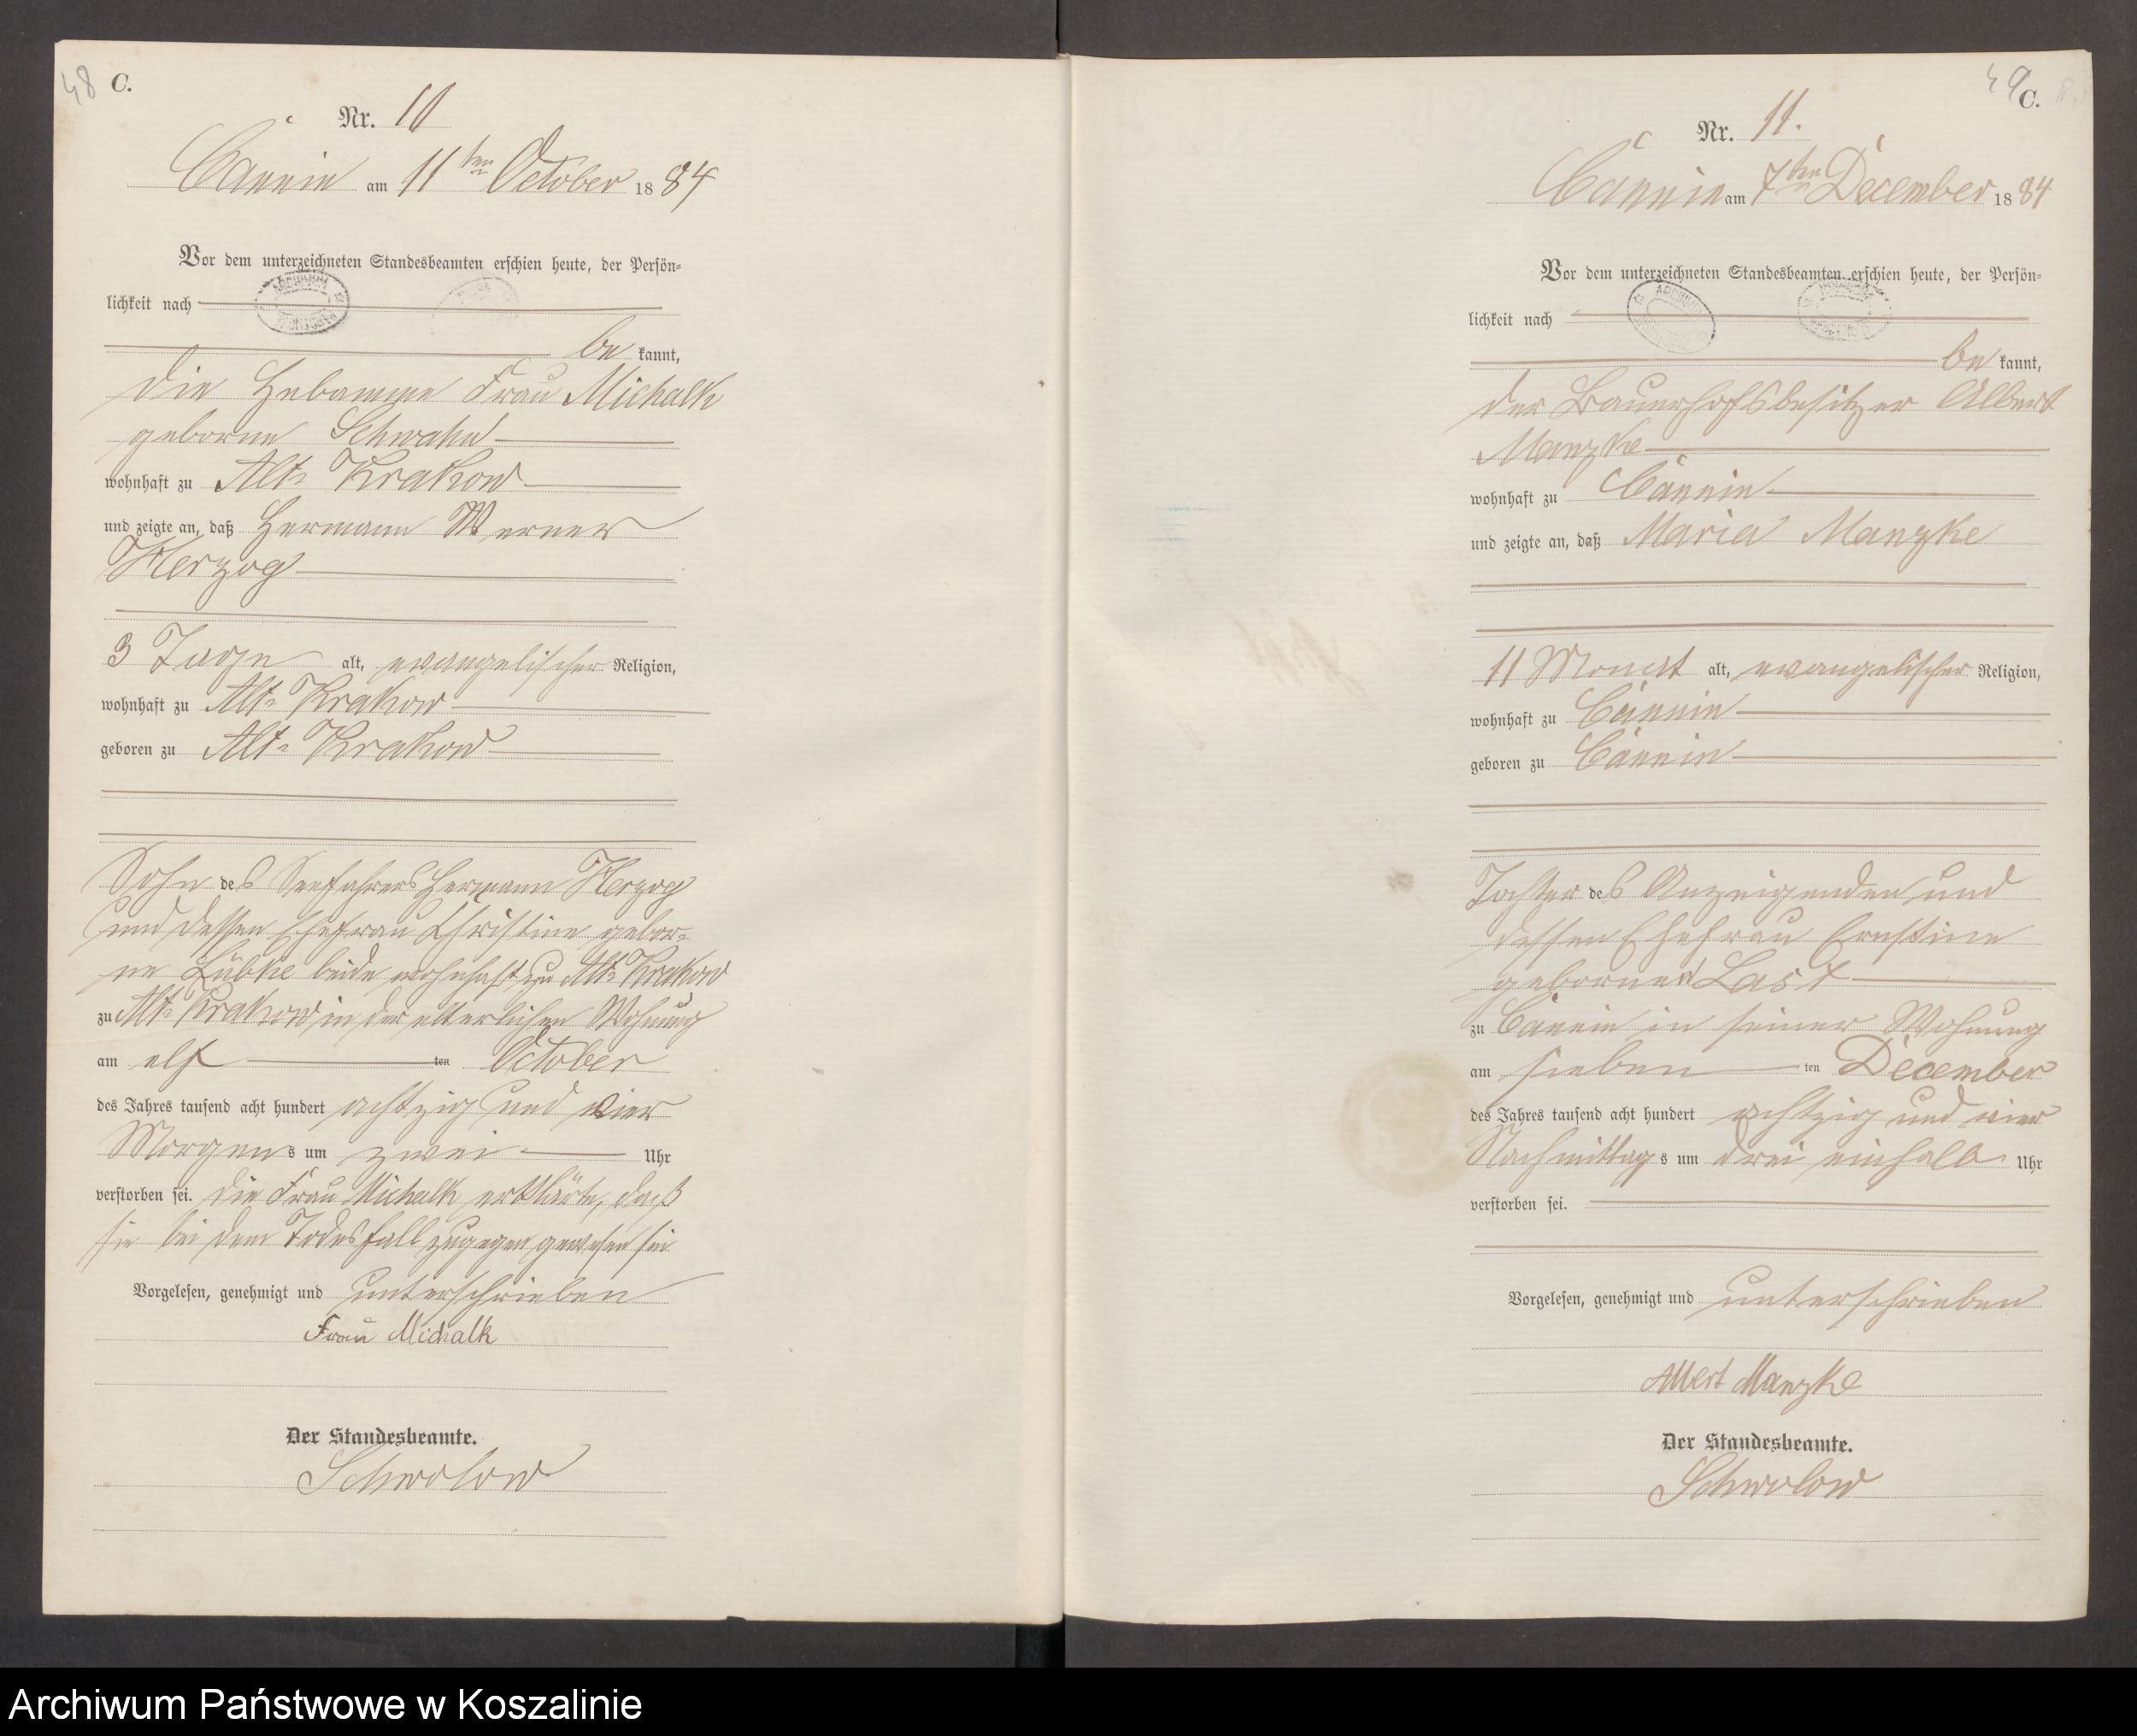 48 C.
Nr. 10
Cannin am 11ten October 1884
Vor dem unterzeichneten Standesbeamten erschien heute, der Persön=
lichkeit nach
be kannt,
die Hebamme Frau Michalk
geborne Schwahn
wohnhaft zu Alt-Krakow
und zeigte an, daß Hermann Werner
Herzog
3 Tage alt, evangelischer Religion,
wohnhaft zu Alt-Krakow
geboren zu Alt-Krakow
Sohn des Seefahrers Hermann Herzog
und dessen Ehefrau Christine gebor-
ne Lübke beide wohnhaft zu Alt-Krakow
zu Alt-Krakow in der elterlichen Wohnung
am elf ten October
des Jahres tausend acht hundert achtzig und vier
Morgens um zwei Uhr
verstorben sei. Die Frau Michalk erklärte, daß
sie bei dem Todesfall zugegen gewesen sei
Vorgelesen, genehmigt und unterschrieben
Frau Michalk
Der Standesbeamte.
Schwolow
49 C.
Nr. 11.
Cannin am 7ten December 1884
Vor dem unterzeichneten Standesbeamten erschien heute, der Persön=
lichkeit nach
be kannt,
der Bauerhofsbesitzer Albert
Manzke
wohnhaft zu Cannin
und zeigte an, daß Maria Manzke
11 Monat alt, evangelischer Religion,
wohnhaft zu Cannin
geboren zu Cannin
Tochter des Anzeigenden und
dessen Ehefrau Ernstine
gebornen Last
zu Cannin in seiner Wohnung
am sieben ten December
des Jahres tausend acht hundert achtzig und vier
Nachmittags um drei einhalb Uhr
verstorben sei.
Vorgelesen, genehmigt und unterschrieben
Albert Manzke
Der Standesbeamte.
Schwolow
Archiwum Państwowe w Koszalinie